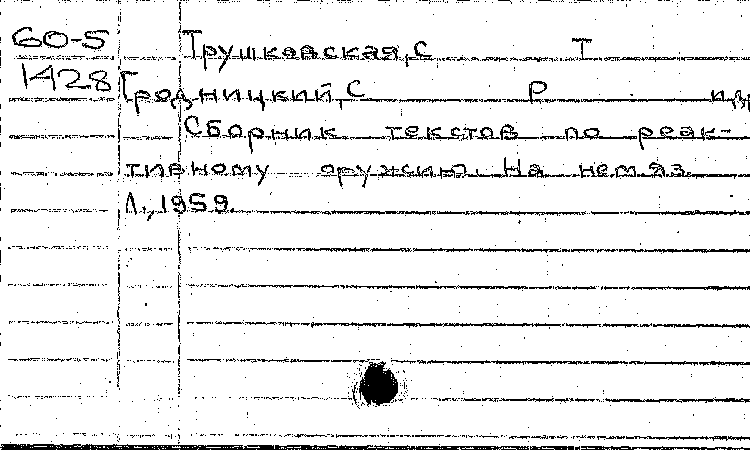 60-5 Трушковская, С Т
1428 Гродницкий, С Р и др
Сборник текстов по реак-
тивному оружию. На нем яз.
Л., 1959.